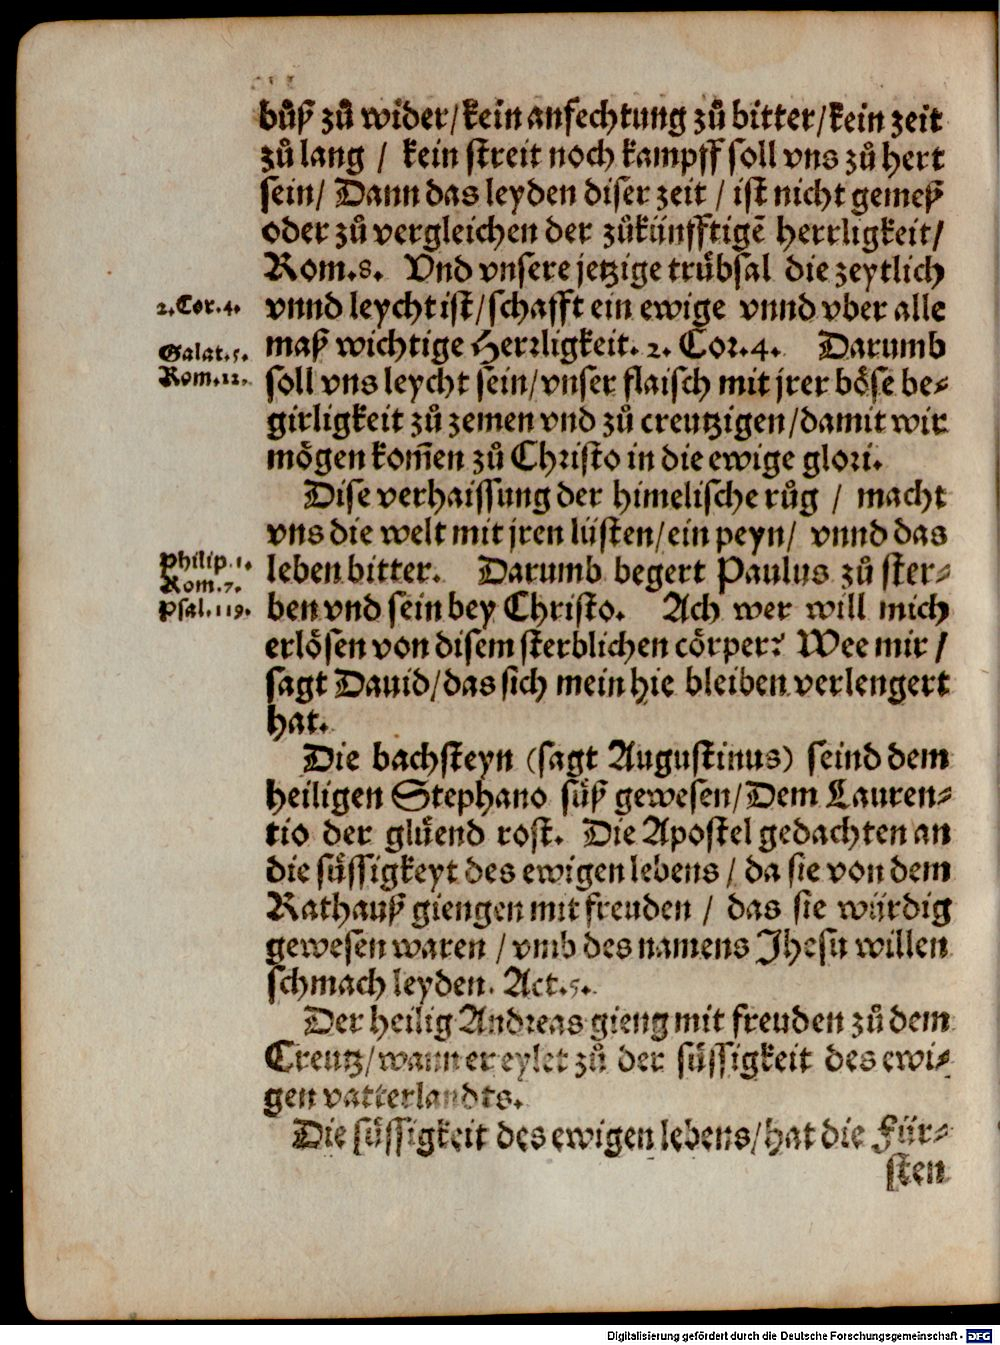 bůß zů wider/kein anfechtung zů bitter/kein zeit
zů lang / kein streit noch kampff soll vns zů hert
sein/ Dann das leyden diser zeit / ist nicht gemeß
oder zů vergleichen der zůkünfftigē herrligkeit/
Rom.8. Vnd vnsere jetzige trübsal die zeytlich
2.Cor.4.
vnnd leycht ist/schafft ein ewige vnnd vber alle
Galat.5.
maß wichtige Herrligkeit. 2. Cor.4. Darumb
Rom.12.
soll vns leycht sein/vnser flaisch mit jrer böse be-
girligkeit zů zemen vnd zů creutzigen/damit wir
mögen kom̄en zů Christo in die ewige glori.
Dise verhaissung der himelische růg / macht
vns die welt mit jren lüsten/ein peyn/ vnnd das
Philip.1.
leben bitter. Darumb begert Paulus zů ster-
Rom.7.
Psal.119.
ben vnd sein bey Christo. Ach wer will mich
erlösen von disem sterblichen cörper? Wee mir /
sagt Dauid/das sich mein hie bleiben verlengert
hat.
Die bachsteyn (sagt Augustinus) seind dem
heiligen Stephano süß gewesen/Dem Lauren-
tio der glüend rost. Die Apostel gedachten an
die süssigkeyt des ewigen lebens / da sie von dem
Rathauß giengen mit freuden / das sie würdig
gewesen waren / vmb des namens Jhesu willen
schmach leyden. Act.5.
Der heilig Andreas gieng mit freuden zů dem
Creutz/wann er eylet zů der süssigkeit des ewi-
gen vatterlandts.
Die süssigkeit des ewigen lebens/hat die Für-
sten
Digitalisierung gefördert durch die Deutsche Forschungsgemeinschaft - DFG